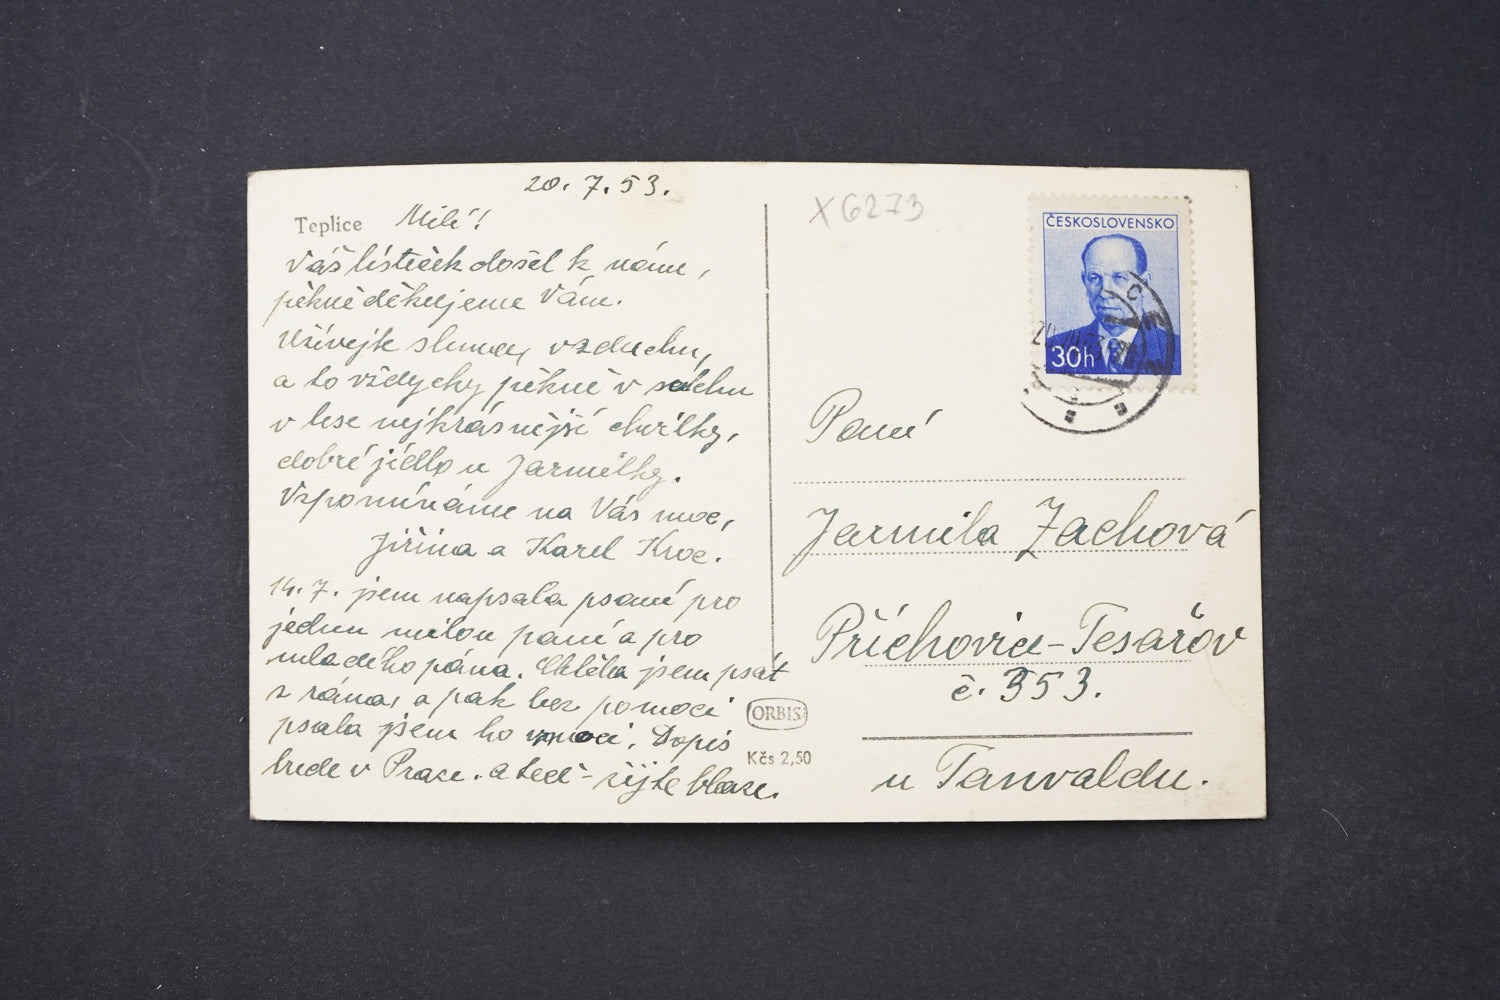 20. 7. 53.
Teplice Milí!
Váš lísteček došel k nám,
pěkně děkujeme Vám.
Užívejte slunce, vzduchu,
a to vždycky pěkně v suchu
v lese nejkrásnější chvilky,
dobré jídlo u Jarmilky.
Vzpomínáme na Vás moc,
Jiřina a Karel Kroc.
14. 7. jsem napsala psaní pro
jednu milou paní a pro
mladého pána. Chtěla jsem psát
z rána, a pak bez pomoci
psala jsem ho v noci. Dopis
bude v Praze. a teď - žijte blaze.
X6273
ČESKOSLOVENSKO
30h
Paní
Jarmila Zachová
Příchovice-Tesařov
č. 353.
u Tanvaldu.
ORBIS
Kčs 2,50